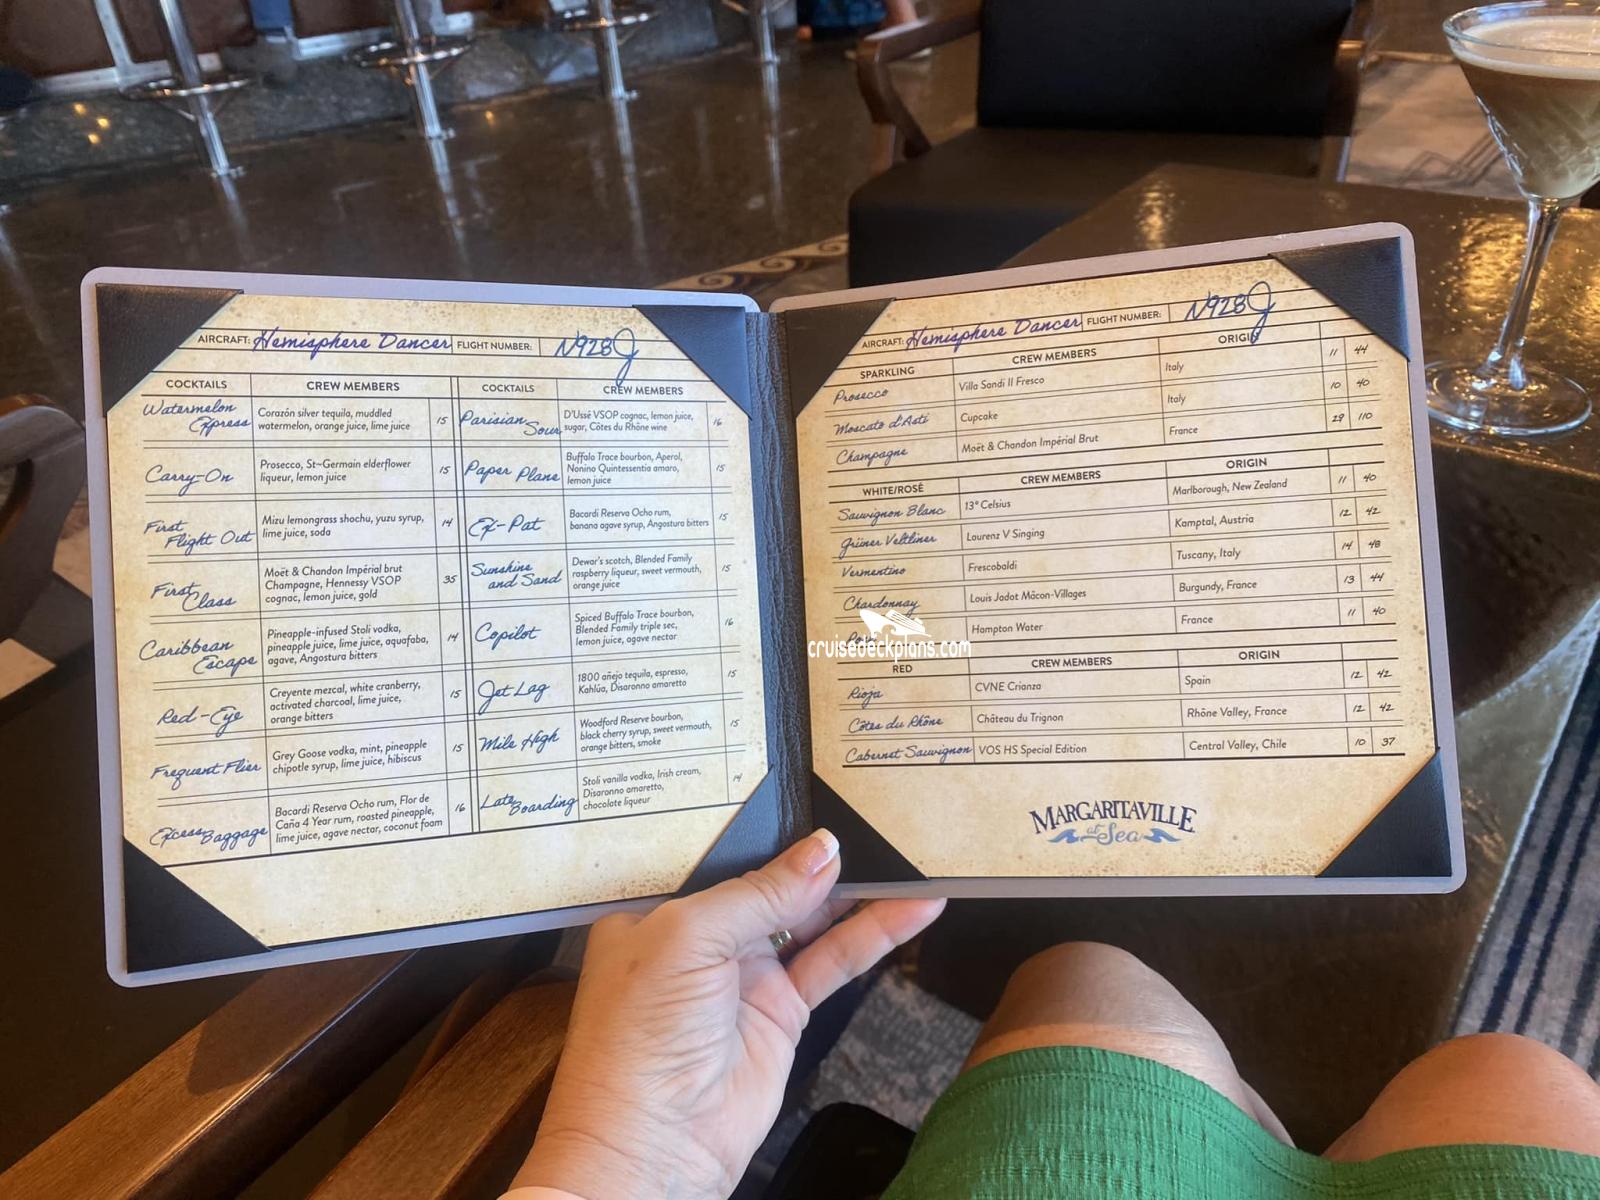 AIRCRAFT: Hemisphere Dancer FLIGHT NUMBER: N928J
COCKTAILS CREW MEMBERS
Watermelon
Express
Corazón silver tequila, muddled
watermelon, orange juice, lime juice
15
Carry-On
Prosecco, St~Germain elderflower
liqueur, lemon juice
15
First
Flight Out
Mizu lemongrass shochu, yuzu syrup,
lime juice, soda
14
First
Class
Moët & Chandon Impérial brut
Champagne, Hennessy VSOP
cognac, lemon juice, gold
35
Caribbean
Escape
Pineapple-infused Stoli vodka,
pineapple juice, lime juice, aquafaba,
agave, Angostura bitters
14
Red-Eye
Creyente mezcal, white cranberry,
activated charcoal, lime juice,
orange bitters
15
Frequent Flier
Grey Goose vodka, mint, pineapple
chipotle syrup, lime juice, hibiscus
15
Excess Baggage
Bacardi Reserva Ocho rum, Flor de
Caña 4 Year rum, roasted pineapple,
lime juice, agave nectar, coconut foam
16
COCKTAILS CREW MEMBERS
Parisian
Sour
D'Ussé VSOP cognac, lemon juice,
sugar, Côtes du Rhône wine
16
Paper Plane
Buffalo Trace bourbon, Aperol,
Nonino Quintessentia amaro,
lemon juice
15
Ex-Pat
Bacardi Reserva Ocho rum,
banana agave syrup, Angostura bitters
15
Sunshine
and Sand
Dewar's scotch, Blended Family
raspberry liqueur, sweet vermouth,
orange juice
15
Copilot
Spiced Buffalo Trace bourbon,
Blended Family triple sec,
lemon juice, agave nectar
16
Jet Lag
1800 añejo tequila, espresso,
Kahlúa, Disaronno amaretto
15
Mile High
Woodford Reserve bourbon,
black cherry syrup, sweet vermouth,
orange bitters, smoke
15
Late Boarding
Stoli vanilla vodka, Irish cream,
Disaronno amaretto,
chocolate liqueur
14
AIRCRAFT: Hemisphere Dancer FLIGHT NUMBER: N928J
SPARKLING CREW MEMBERS ORIGIN
Prosecco Villa Sandi Il Fresco Italy 11 44
Moscato d'Asti Cupcake Italy 10 40
Champagne Moët & Chandon Impérial Brut France 29 110
WHITE/ROSÉ CREW MEMBERS ORIGIN
Sauvignon Blanc 13° Celsius Marlborough, New Zealand 11 40
Grüner Veltliner Laurenz V Singing Kamptal, Austria 12 42
Vermentino Frescobaldi Tuscany, Italy 14 48
Chardonnay Louis Jadot Mâcon-Villages Burgundy, France 13 44
Hampton Water France 11 40
RED CREW MEMBERS ORIGIN
Rioja CVNE Crianza Spain 12 42
Côtes du Rhône Château du Trignon Rhône Valley, France 12 42
Cabernet Sauvignon VOS HS Special Edition Central Valley, Chile 10 37
MARGARITAVILLE
at Sea
cruisedeckplans.com